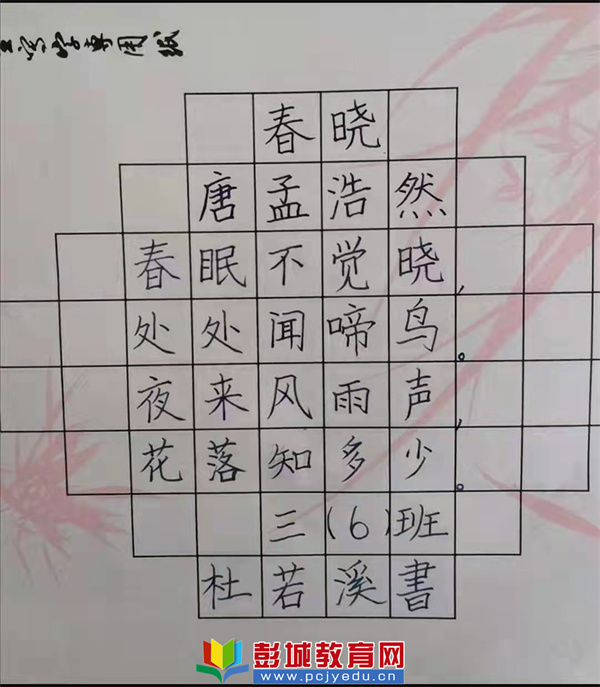 写字专用纸
春晓
唐孟浩然
春眠不觉晓，
处处闻啼鸟。
夜来风雨声，
花落知多少。
三(6)班
杜若溪書
彭城教育网
www.pcjyedu.cn